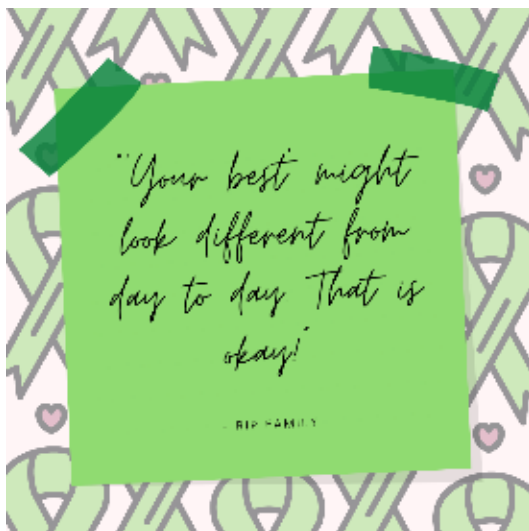 "Your best might
look different from
day to day That is
okay!"
FAMILY